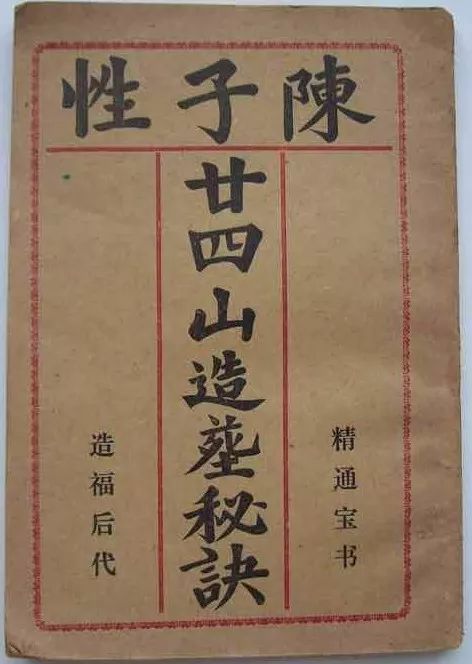 陳子性
精通宝书
廿四山造葬秘訣
造福后代